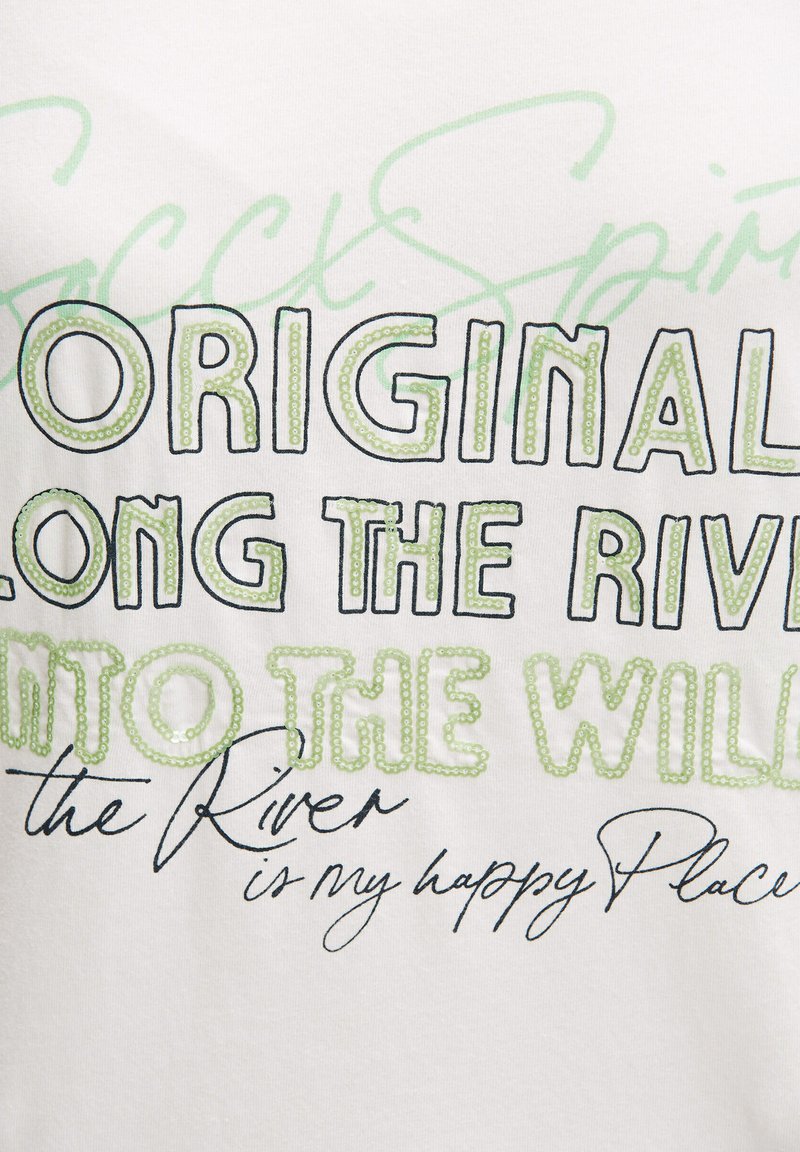 Soccx Spirit
ORIGINAL
LONG THE RIVE
INTO THE WILL
the River
is my happy Place